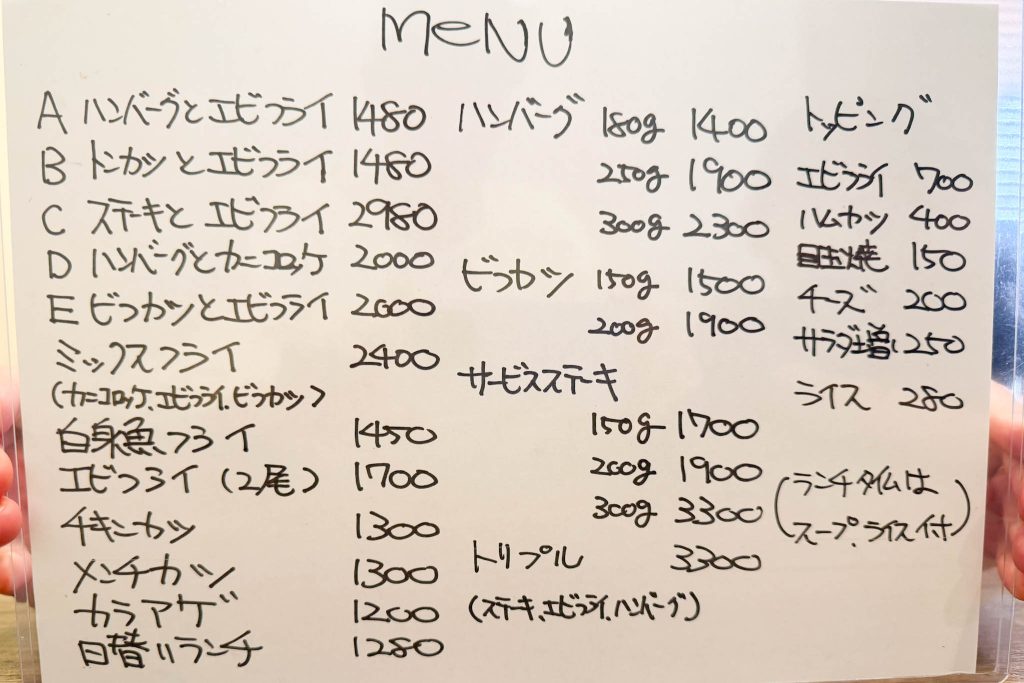 MeNU
A ハンバーグとエビフライ 1480
B トンカツとエビフライ 1480
C ステーキとエビフライ 2980
D ハンバーグとカニコロッケ 2000
E ビフカツとエビフライ 2000
ミックスフライ 2400
(カニコロッケ、エビフライ、ビフカツ)
白身魚フライ 1450
エビフライ (2尾) 1700
チキンカツ 1300
メンチカツ 1300
カラアゲ 1200
日替リランチ 1280
ハンバーグ 180g 1400
250g 1900
300g 2300
ビフカツ 150g 1500
200g 1900
サービスステーキ
150g 1700
200g 1900
300g 3300
トリプル 3300
(ステーキ、エビフライ、ハンバーグ)
トッピング
エビフライ 700
ハムカツ 400
目玉焼 150
チーズ 200
サラダ増 250
ライス 280
(ランチタイムは
スープ、ライス付)